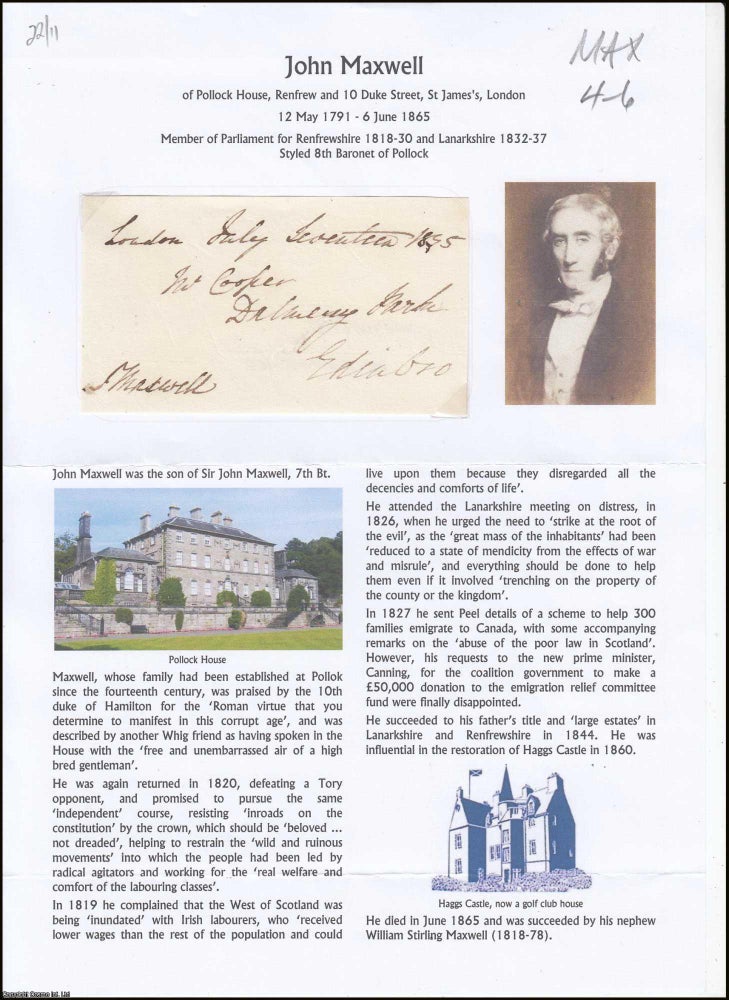 22/11
MAX
4-6
John Maxwell
of Pollock House, Renfrew and 10 Duke Street, St James's, London
12 May 1791 - 6 June 1865
Member of Parliament for Renfrewshire 1818-30 and Lanarkshire 1832-37
Styled 8th Baronet of Pollock
London July Seventeen 1835
Mr Cooper
Dalmeny Park
Edinbro
J Maxwell
John Maxwell was the son of Sir John Maxwell, 7th Bt.
Pollock House
Maxwell, whose family had been established at Pollok
since the fourteenth century, was praised by the 10th
duke of Hamilton for the ‘Roman virtue that you
determine to manifest in this corrupt age’, and was
described by another Whig friend as having spoken in the
House with the ‘free and unembarrassed air of a high
bred gentleman’.
He was again returned in 1820, defeating a Tory
opponent, and promised to pursue the same
‘independent’ course, resisting ‘inroads on the
constitution’ by the crown, which should be ‘beloved ...
not dreaded’, helping to restrain the ‘wild and ruinous
movements’ into which the people had been led by
radical agitators and working for the ‘real welfare and
comfort of the labouring classes’.
In 1819 he complained that the West of Scotland was
being ‘inundated’ with Irish labourers, who ‘received
lower wages than the rest of the population and could
live upon them because they disregarded all the
decencies and comforts of life’.
He attended the Lanarkshire meeting on distress, in
1826, when he urged the need to ‘strike at the root of
the evil’, as the ‘great mass of the inhabitants’ had been
‘reduced to a state of mendicity from the effects of war
and misrule’, and everything should be done to help
them even if it involved ‘trenching on the property of
the county or the kingdom’.
In 1827 he sent Peel details of a scheme to help 300
families emigrate to Canada, with some accompanying
remarks on the ‘abuse of the poor law in Scotland’.
However, his requests to the new prime minister,
Canning, for the coalition government to make a
£50,000 donation to the emigration relief committee
fund were finally disappointed.
He succeeded to his father’s title and ‘large estates’ in
Lanarkshire and Renfrewshire in 1844. He was
influential in the restoration of Haggs Castle in 1860.
Haggs Castle, now a golf club house
He died in June 1865 and was succeeded by his nephew
William Stirling Maxwell (1818-78).
Copyright Cosmo Bd. Ltd